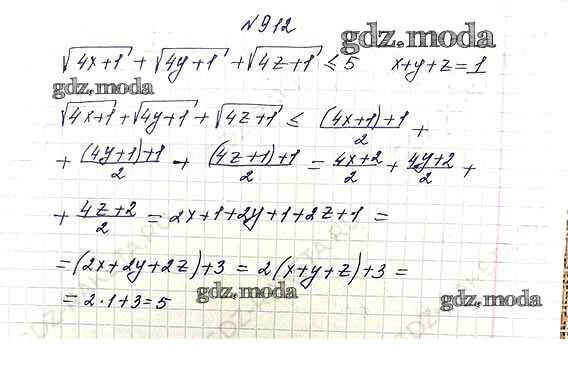 №912
gdz.moda
√4x+1 + √4y+1 + √4z+1 ≤ 5 x+y+z=1
gdz.moda
√4x+1 + √4y+1 + √4z+1 ≤ (4x+1)+1/2 +
+ (4y+1)+1/2 + (4z+1)+1/2 = 4x+2/2 + 4y+2/2 +
+ 4z+2/2 = 2x+1+2y+1+2z+1 =
=(2x+2y+2z)+3 = 2(x+y+z)+3 =
= 2·1+3=5
gdz.moda
gdz.moda